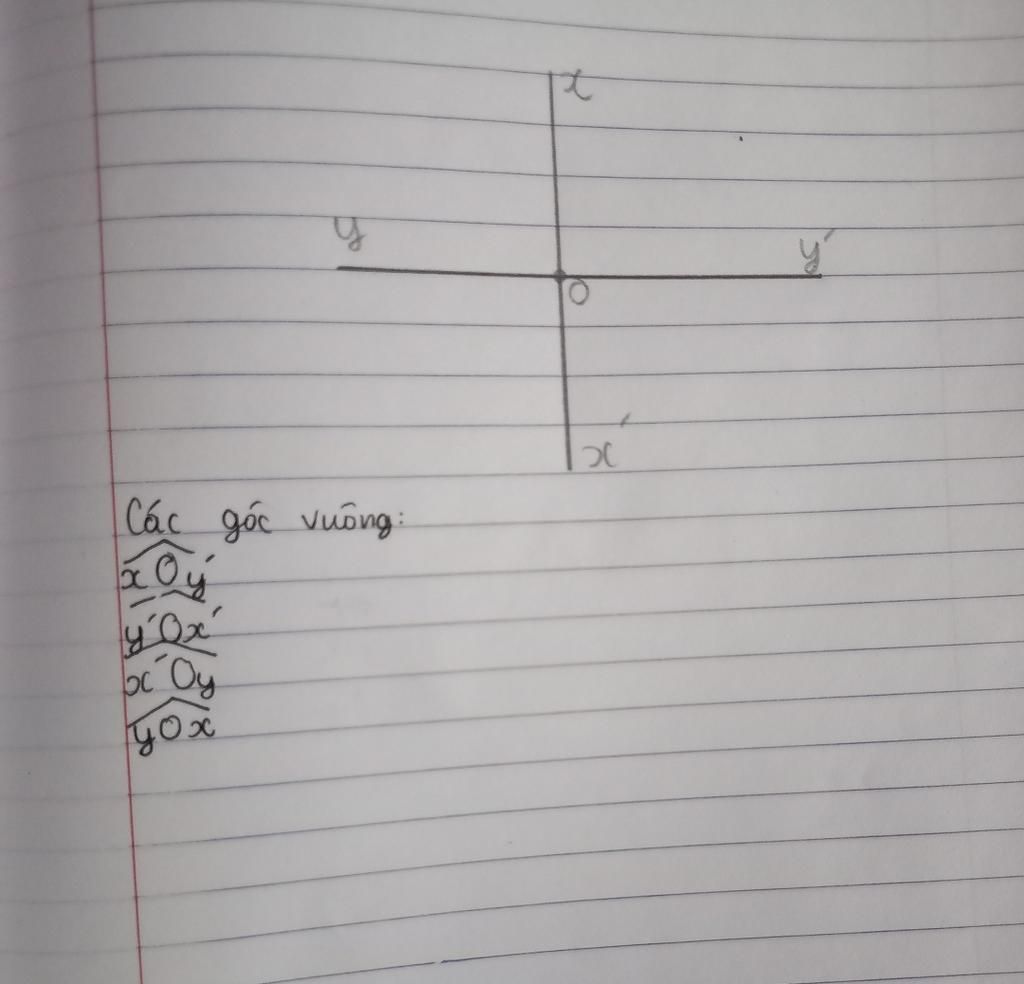 x
y
y'
O
x'
Các góc vuông:
xOy'
y'Ox'
x'Oy
yOx